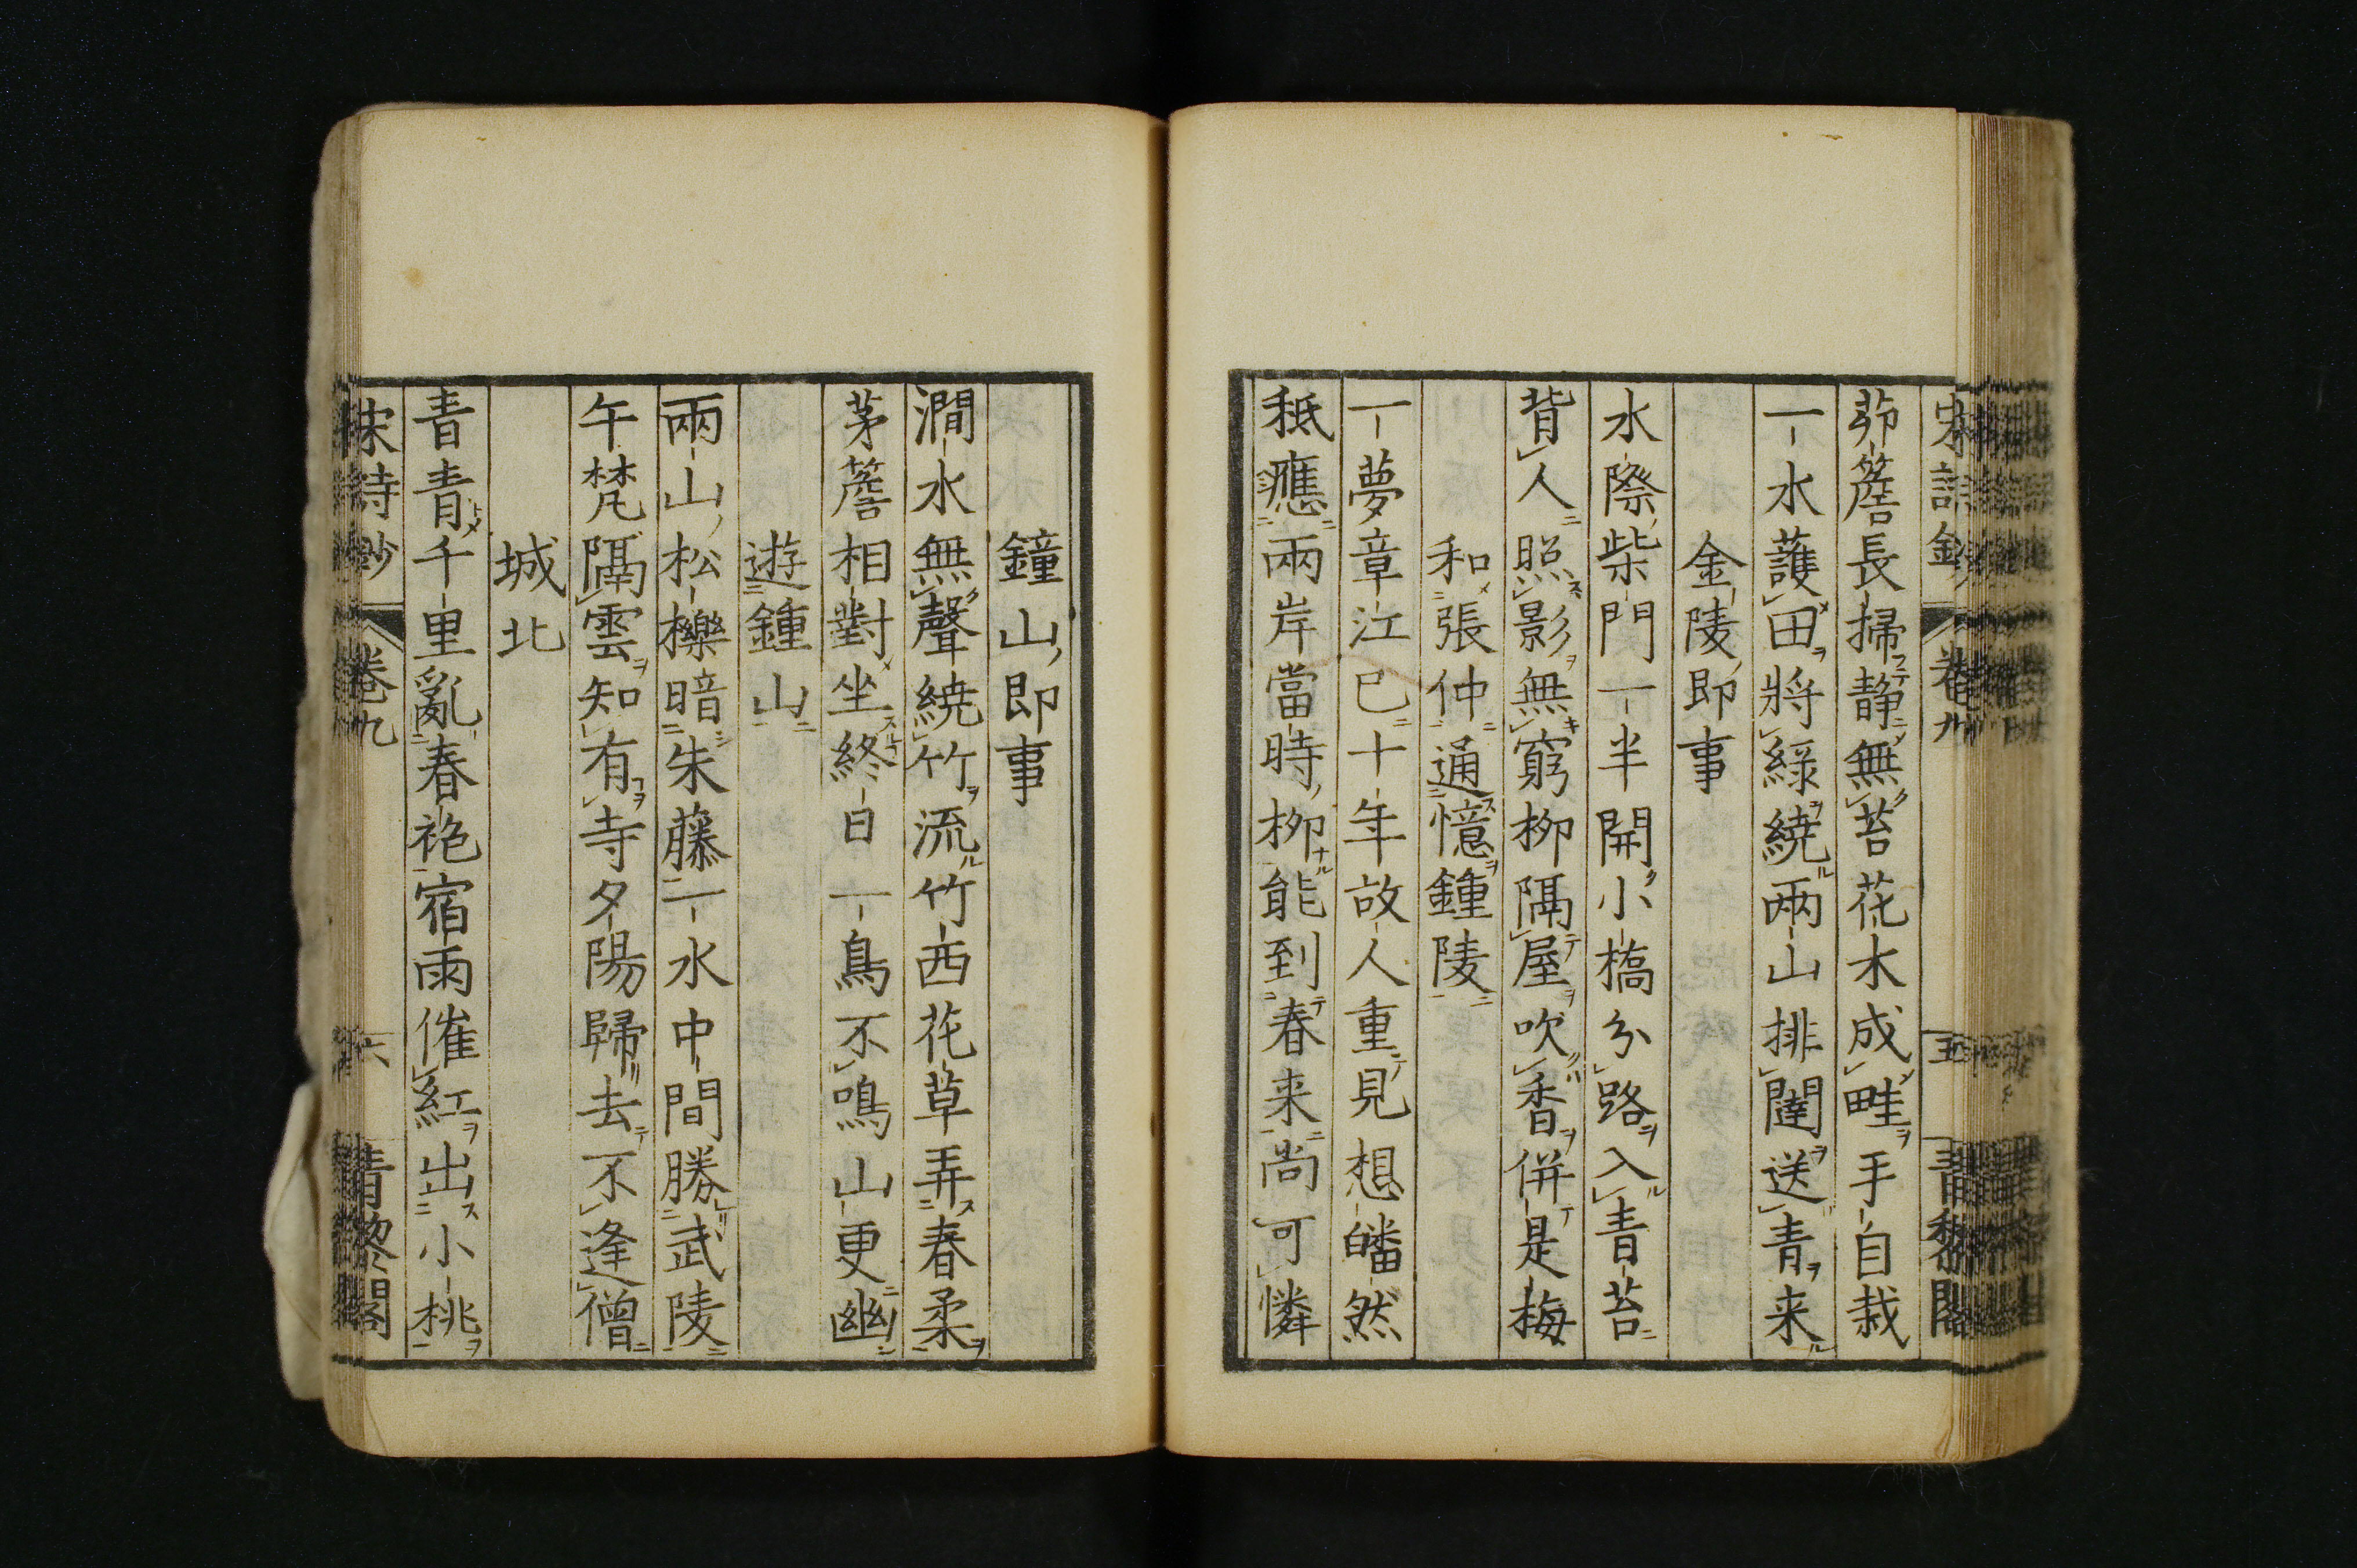 宋詩鈔 卷九 五 青黎閣
茆簷長掃靜無苔花木成畦手自栽
一水護田將綠繞兩山排闥送青来
金陵即事
水際柴門一半開小橋分路入青苔
背人照影無窮柳隔屋吹香併是梅
和張仲通憶鍾陵
一夢章江已十年故人重見想皤然
秪應兩岸當時柳能到春来尚可憐
鐘山即事
澗水無聲繞竹流竹西花草弄春柔
茅簷相對坐終日一鳥不鳴山更幽
遊鍾山
兩山松櫟暗朱藤一水中間勝武陵
午梵隔雲知有寺夕陽歸去不逢僧
城北
青青千里亂春袍宿雨催紅出小桃
宋詩鈔 卷九 六 青黎閣